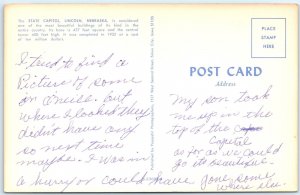 The STATE CAPITOL, LINCOLN, NEBRASKA, is considered
one of the most beautiful buildings of its kind in the
entire country. Its base is 437 feet square and the central
tower 400 feet high. It was completed in 1932 at a cost of
ten million dollars.
I tried to find a
Picture of some
on O'neill. but
where I looked they
didn't have any
so next time
maybe. I was in
a hurry or could have gone some
where else.
PLACE
STAMP
HERE
POST CARD
Address
my son took
me up in the
top of the
Capital
as far as we could
go its beautiful.